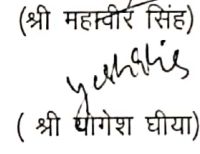 (श्री महावीर सिंह)
( श्री योगेश घीया)